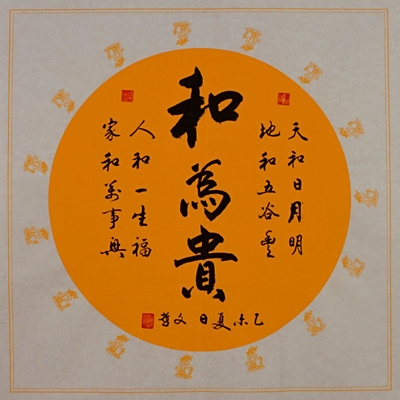 和為貴
天和日月明
地和五谷豐
人和一生福
家和萬事興
乙未夏日文哲